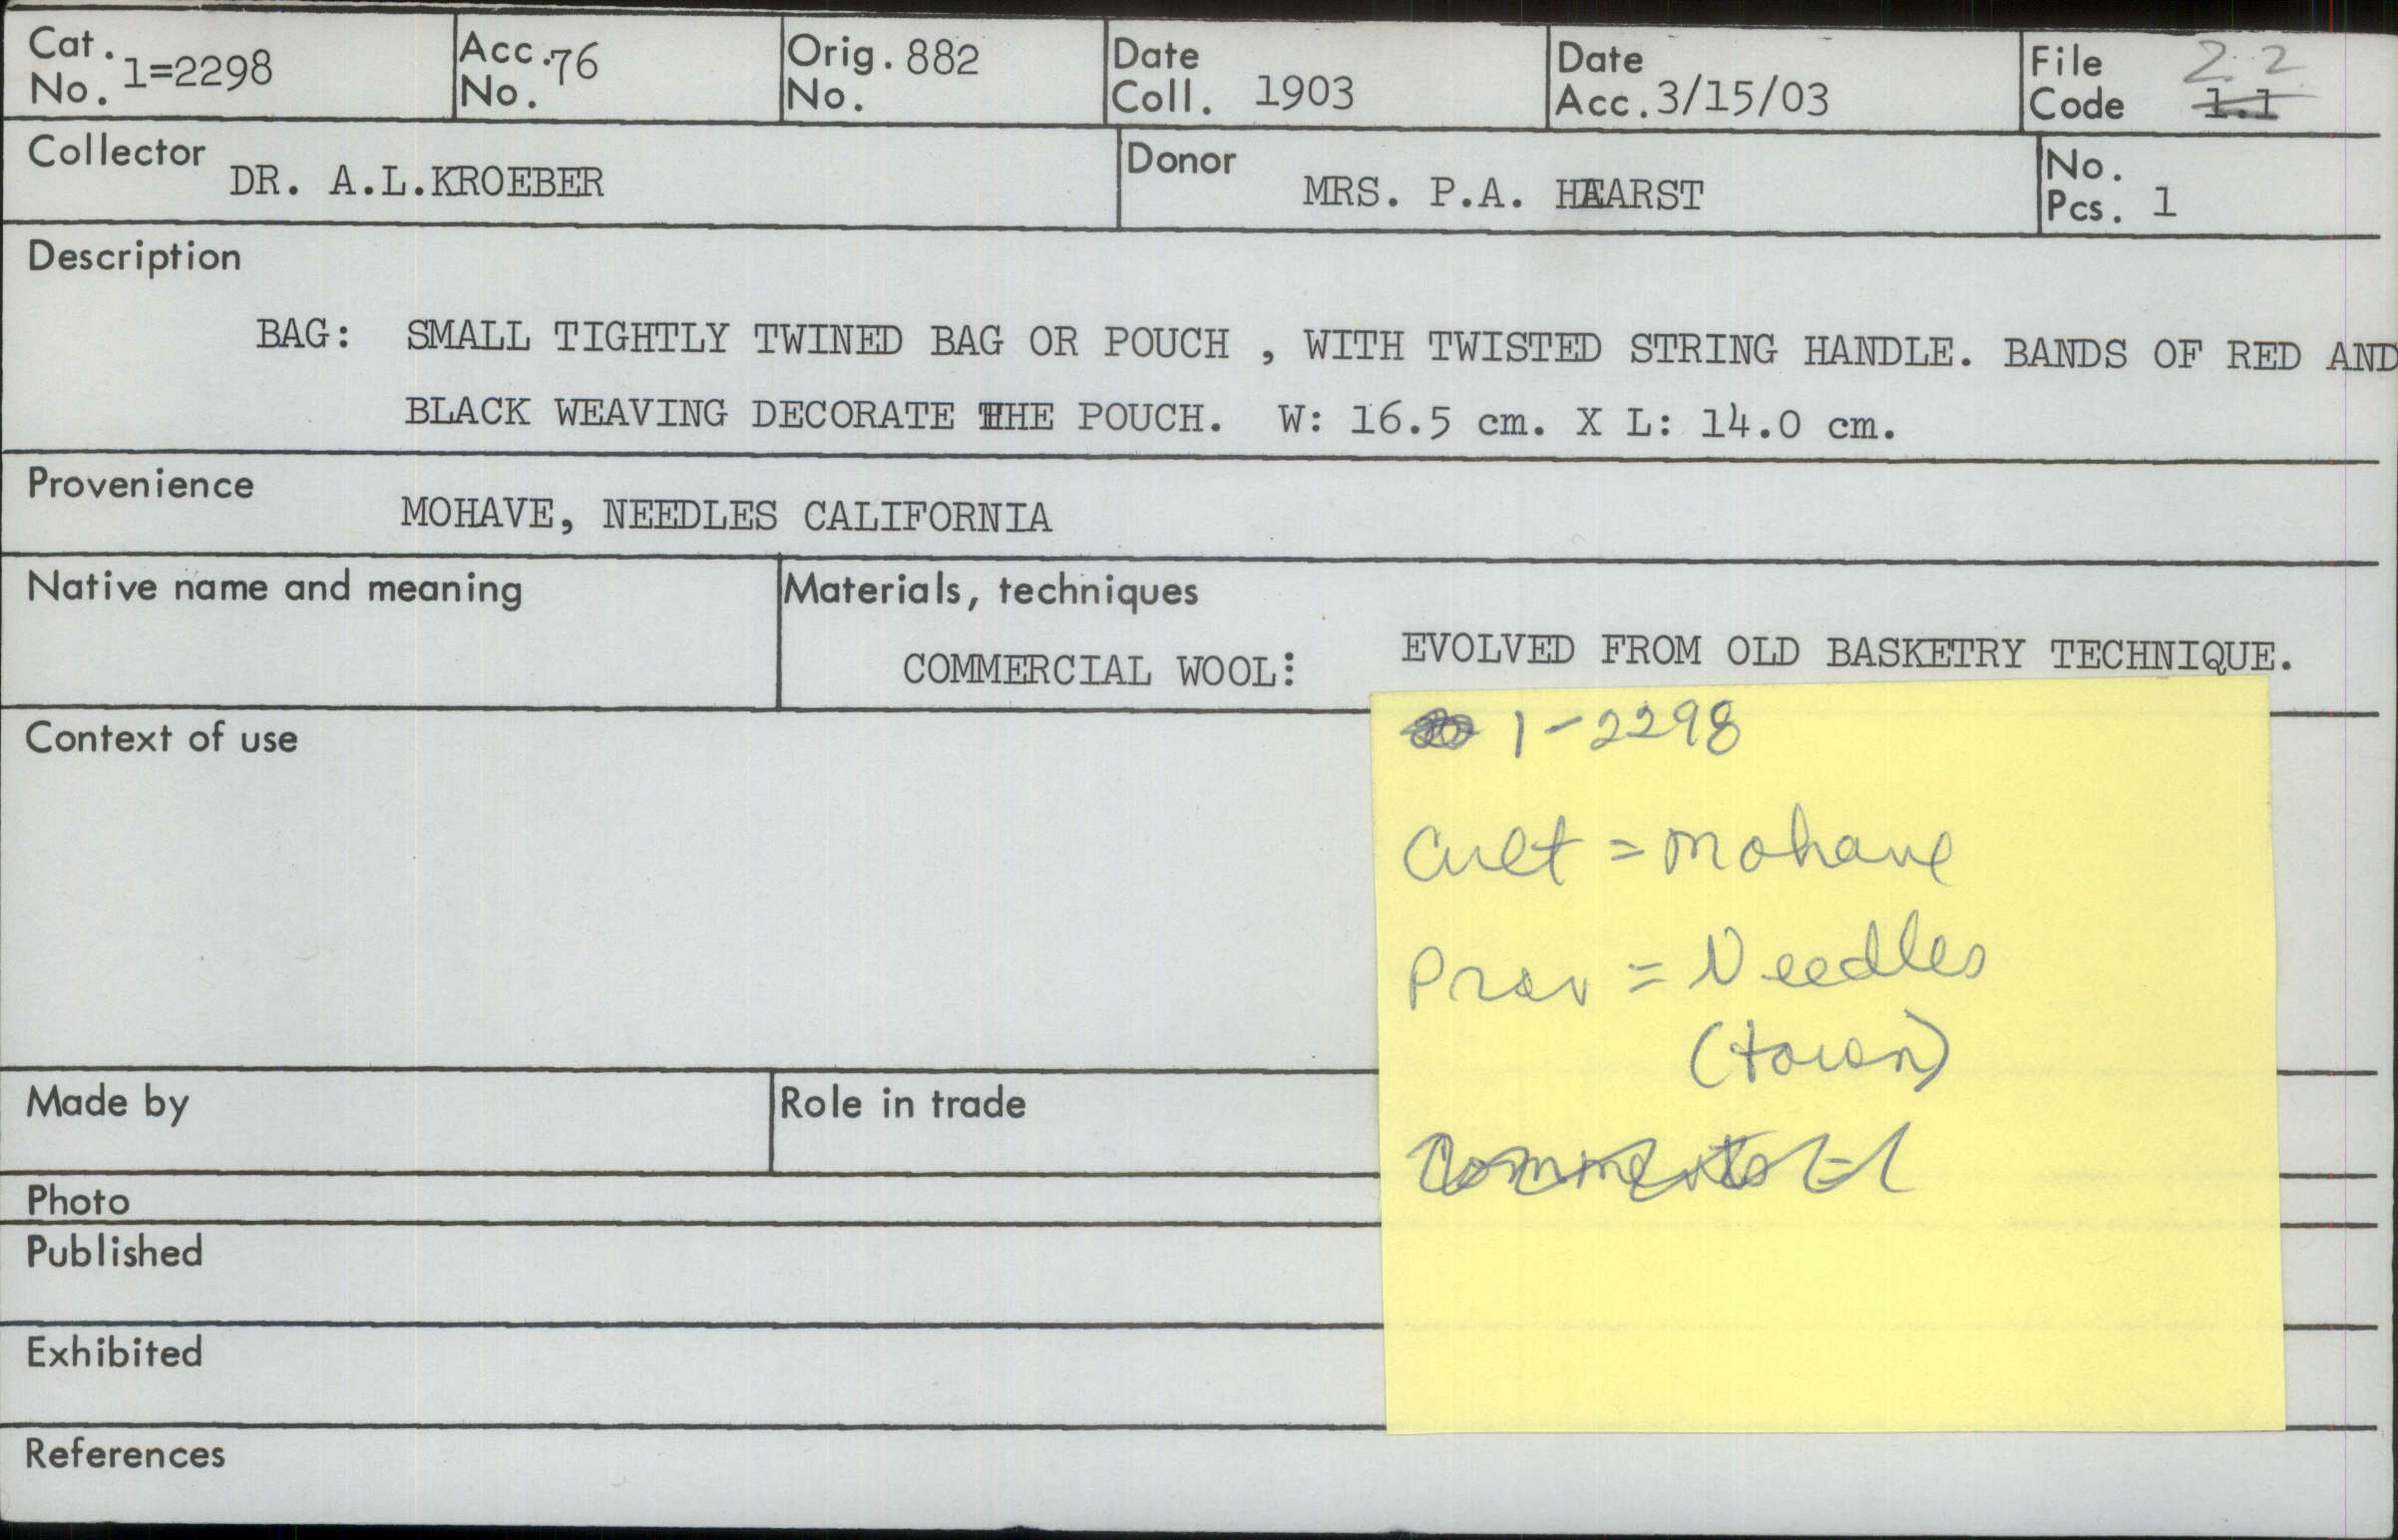 Cat. No. 1=2298
Acc. No. 76
Orig. No. 882
Date Coll. 1903
Date Acc. 3/15/03
File Code 2.2 1.1
Collector DR. A.L.KROEBER
Donor MRS. P.A. HAARST
No. Pcs. 1
Description
BAG: SMALL TIGHTLY TWINED BAG OR POUCH , WITH TWISTED STRING HANDLE. BANDS OF RED AND
BLACK WEAVING DECORATE THE POUCH. W: 16.5 cm. X L: 14.0 cm.
Provenience
MOHAVE, NEEDLES CALIFORNIA
Native name and meaning
Materials, techniques
COMMERCIAL WOOL: EVOLVED FROM OLD BASKETRY TECHNIQUE.
1-2298
Cult = Mohave
Prov = Needles
(town)
Comments =
Context of use
Made by
Role in trade
Photo
Published
Exhibited
References